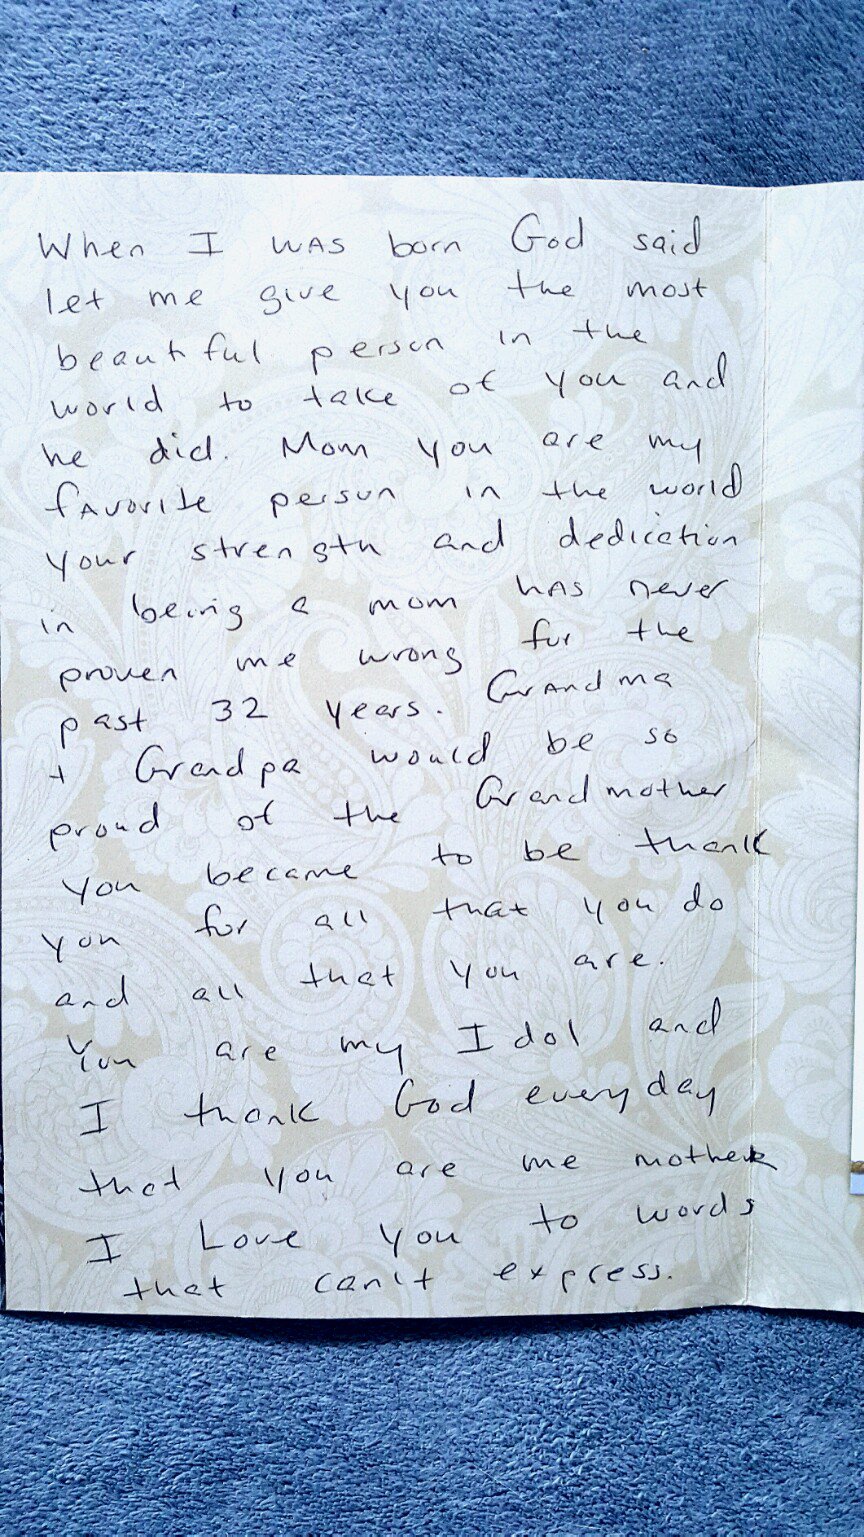 When I WAS born God said
let me give you the most
beautiful person in the
world to take of you and
he did. Mom you are my
fAvorite person in the world
your strength and dedication
in being a mom hAS never
proven me wrong for the
past 32 years. GrAndma
+ Grandpa would be so
proud of the Grandmother
you became to be thank
you for all that you do
and all that you are.
You are my Idol and
I thank God everyday
that you are me mother
I Love you to words
that can't express.